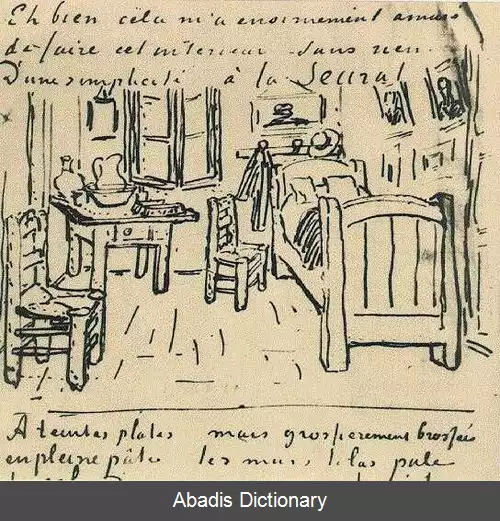 Eh bien cela m'a enormement amusé
de faire cet interieur sans rien.
D'une simplicité à la Seurat
A teintes plates mais grossierement brossées
en pleine pâte les murs lilas pale
Abadis Dictionary